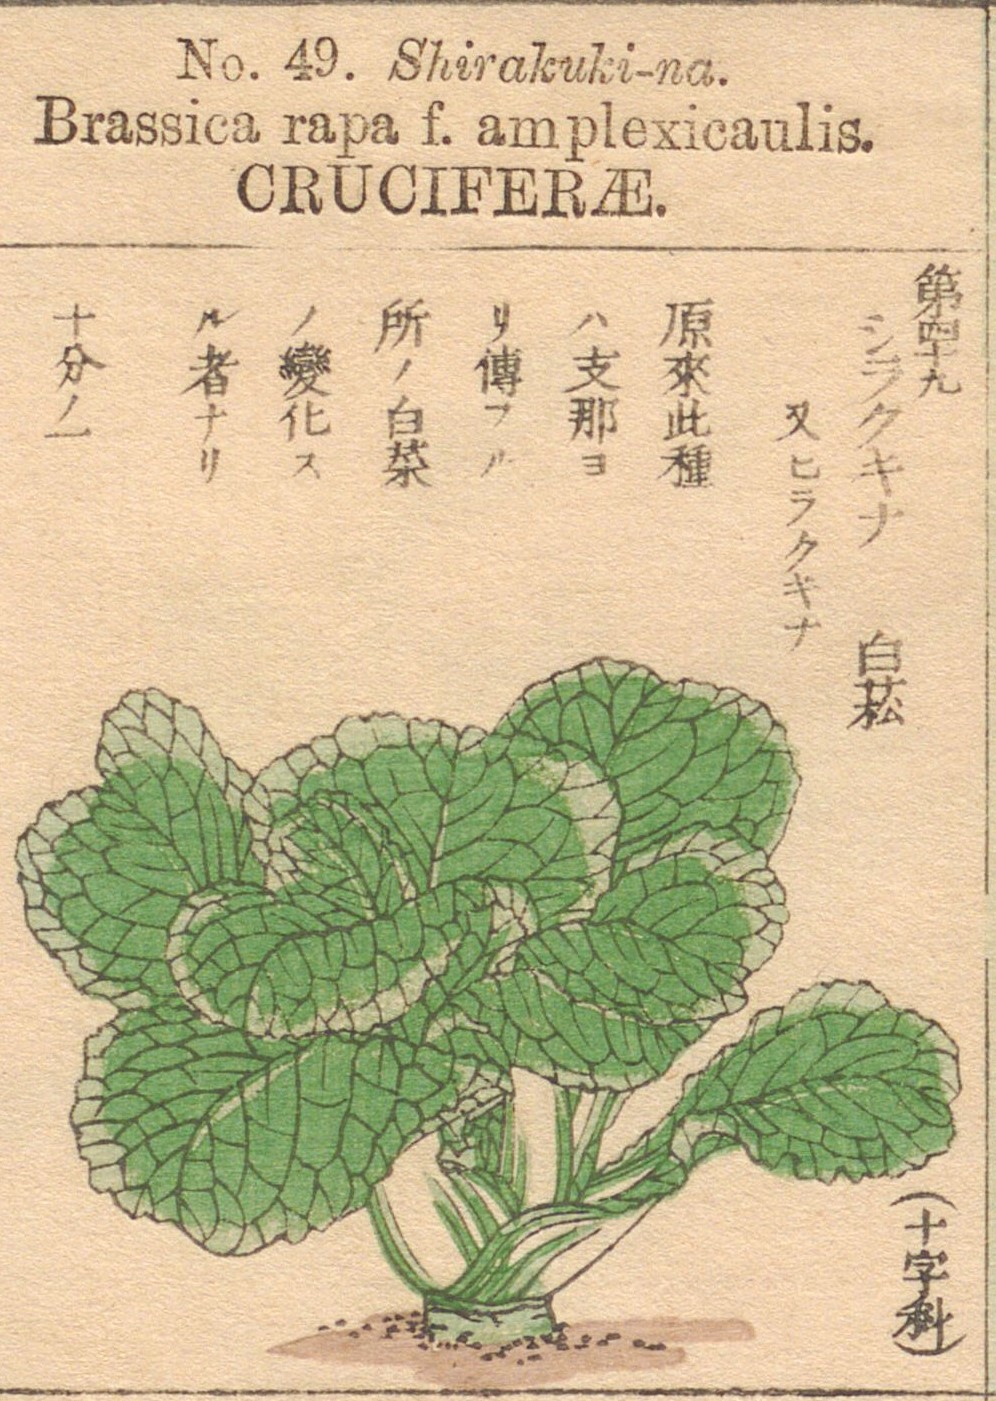 No. 49. Shirakuki-na.
Brassica rapa f. amplexicaulis.
CRUCIFERÆ.
第四十九
シラクキナ 白菘
又ヒラクキナ
原來此種
ハ支那ヨ
リ傳フル
所ノ白菜
ノ變化ス
ル者ナリ
十分ノ一
(十字科)